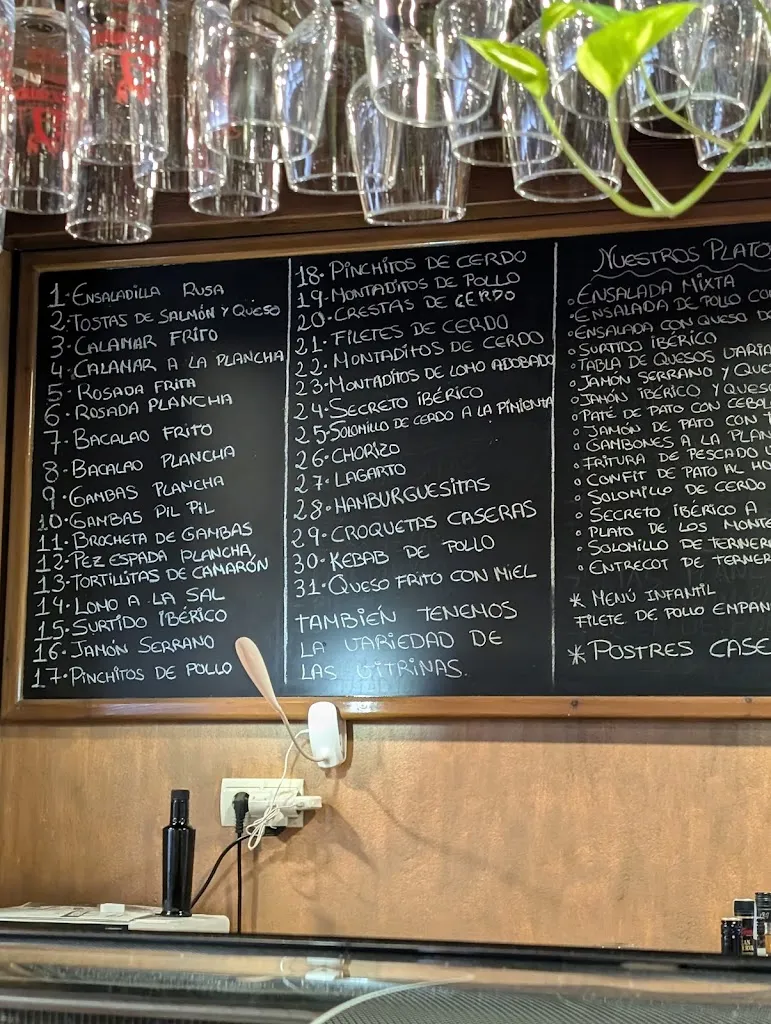 1· ENSALADILLA RUSA
2· TOSTAS DE SALMÓN Y QUESO
3· CALAMAR FRITO
4· CALAMAR A LA PLANCHA
5· ROSADA FRITA
6· ROSADA PLANCHA
7· BACALAO FRITO
8· BACALAO PLANCHA
9· GAMBAS PLANCHA
10· GAMBAS PIL PIL
11· BROCHETA DE GAMBAS
12· PEZ ESPADA PLANCHA
13· TORTILLITAS DE CAMARÓN
14· LOMO A LA SAL
15· SURTIDO IBÉRICO
16· JAMÓN SERRANO
17· PINCHITOS DE POLLO
18· PINCHITOS DE CERDO
19· MONTADITOS DE POLLO
20· CRESTAS DE CERDO
21· FILETES DE CERDO
22· MONTADITOS DE CERDO
23· MONTADITOS DE LOMO ADOBADO
24· SECRETO IBÉRICO
25· SOLOMILLO DE CERDO A LA PIMIENTA
26· CHORIZO
27· LAGARTO
28· HAMBURGUESITAS
29· CROQUETAS CASERAS
30· KEBAB DE POLLO
31· QUESO FRITO CON MIEL
TAMBIÉN TENEMOS
LA VARIEDAD DE
LAS VITRINAS.
NUESTROS PLATO
• ENSALADA MIXTA
• ENSALADA DE POLLO CO
• ENSALADA CON QUESO DE
• SURTIDO IBÉRICO
• TABLA DE QUESOS VARIA
• JAMÓN SERRANO Y QUE
• JAMÓN IBÉRICO Y QUESO
• PATÉ DE PATO CON CEBOL
• JAMÓN DE PATO CON T
• GAMBONES A LA PLAN
• FRITURA DE PESCADO
• CONFIT DE PATO AL HO
• SOLOMILLO DE CERDO
• SECRETO IBÉRICO A
• PLATO DE LOS MONTE
• SOLOMILLO DE TERNER
• ENTRECOT DE TERNER
* MENÚ INFANTIL
FILETE DE POLLO EMPAN
* POSTRES CASE